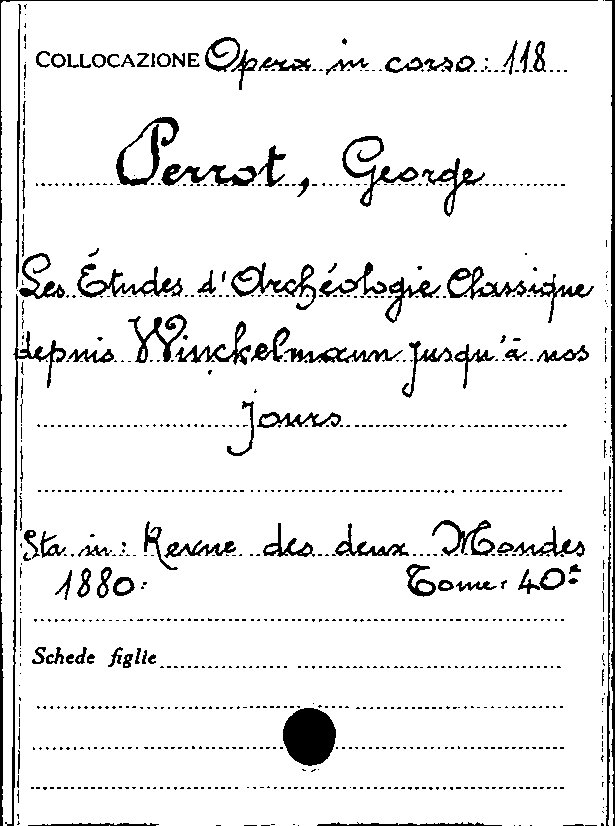 COLLOCAZIONE Opera in corso: 118
Perrot, George
Les Études d'Archéologie Classique
depuis Winckelmann jusqu'à nos
jours
Sta in: Revue des deux Mondes
1880: Tome: 40°
Schede figlie